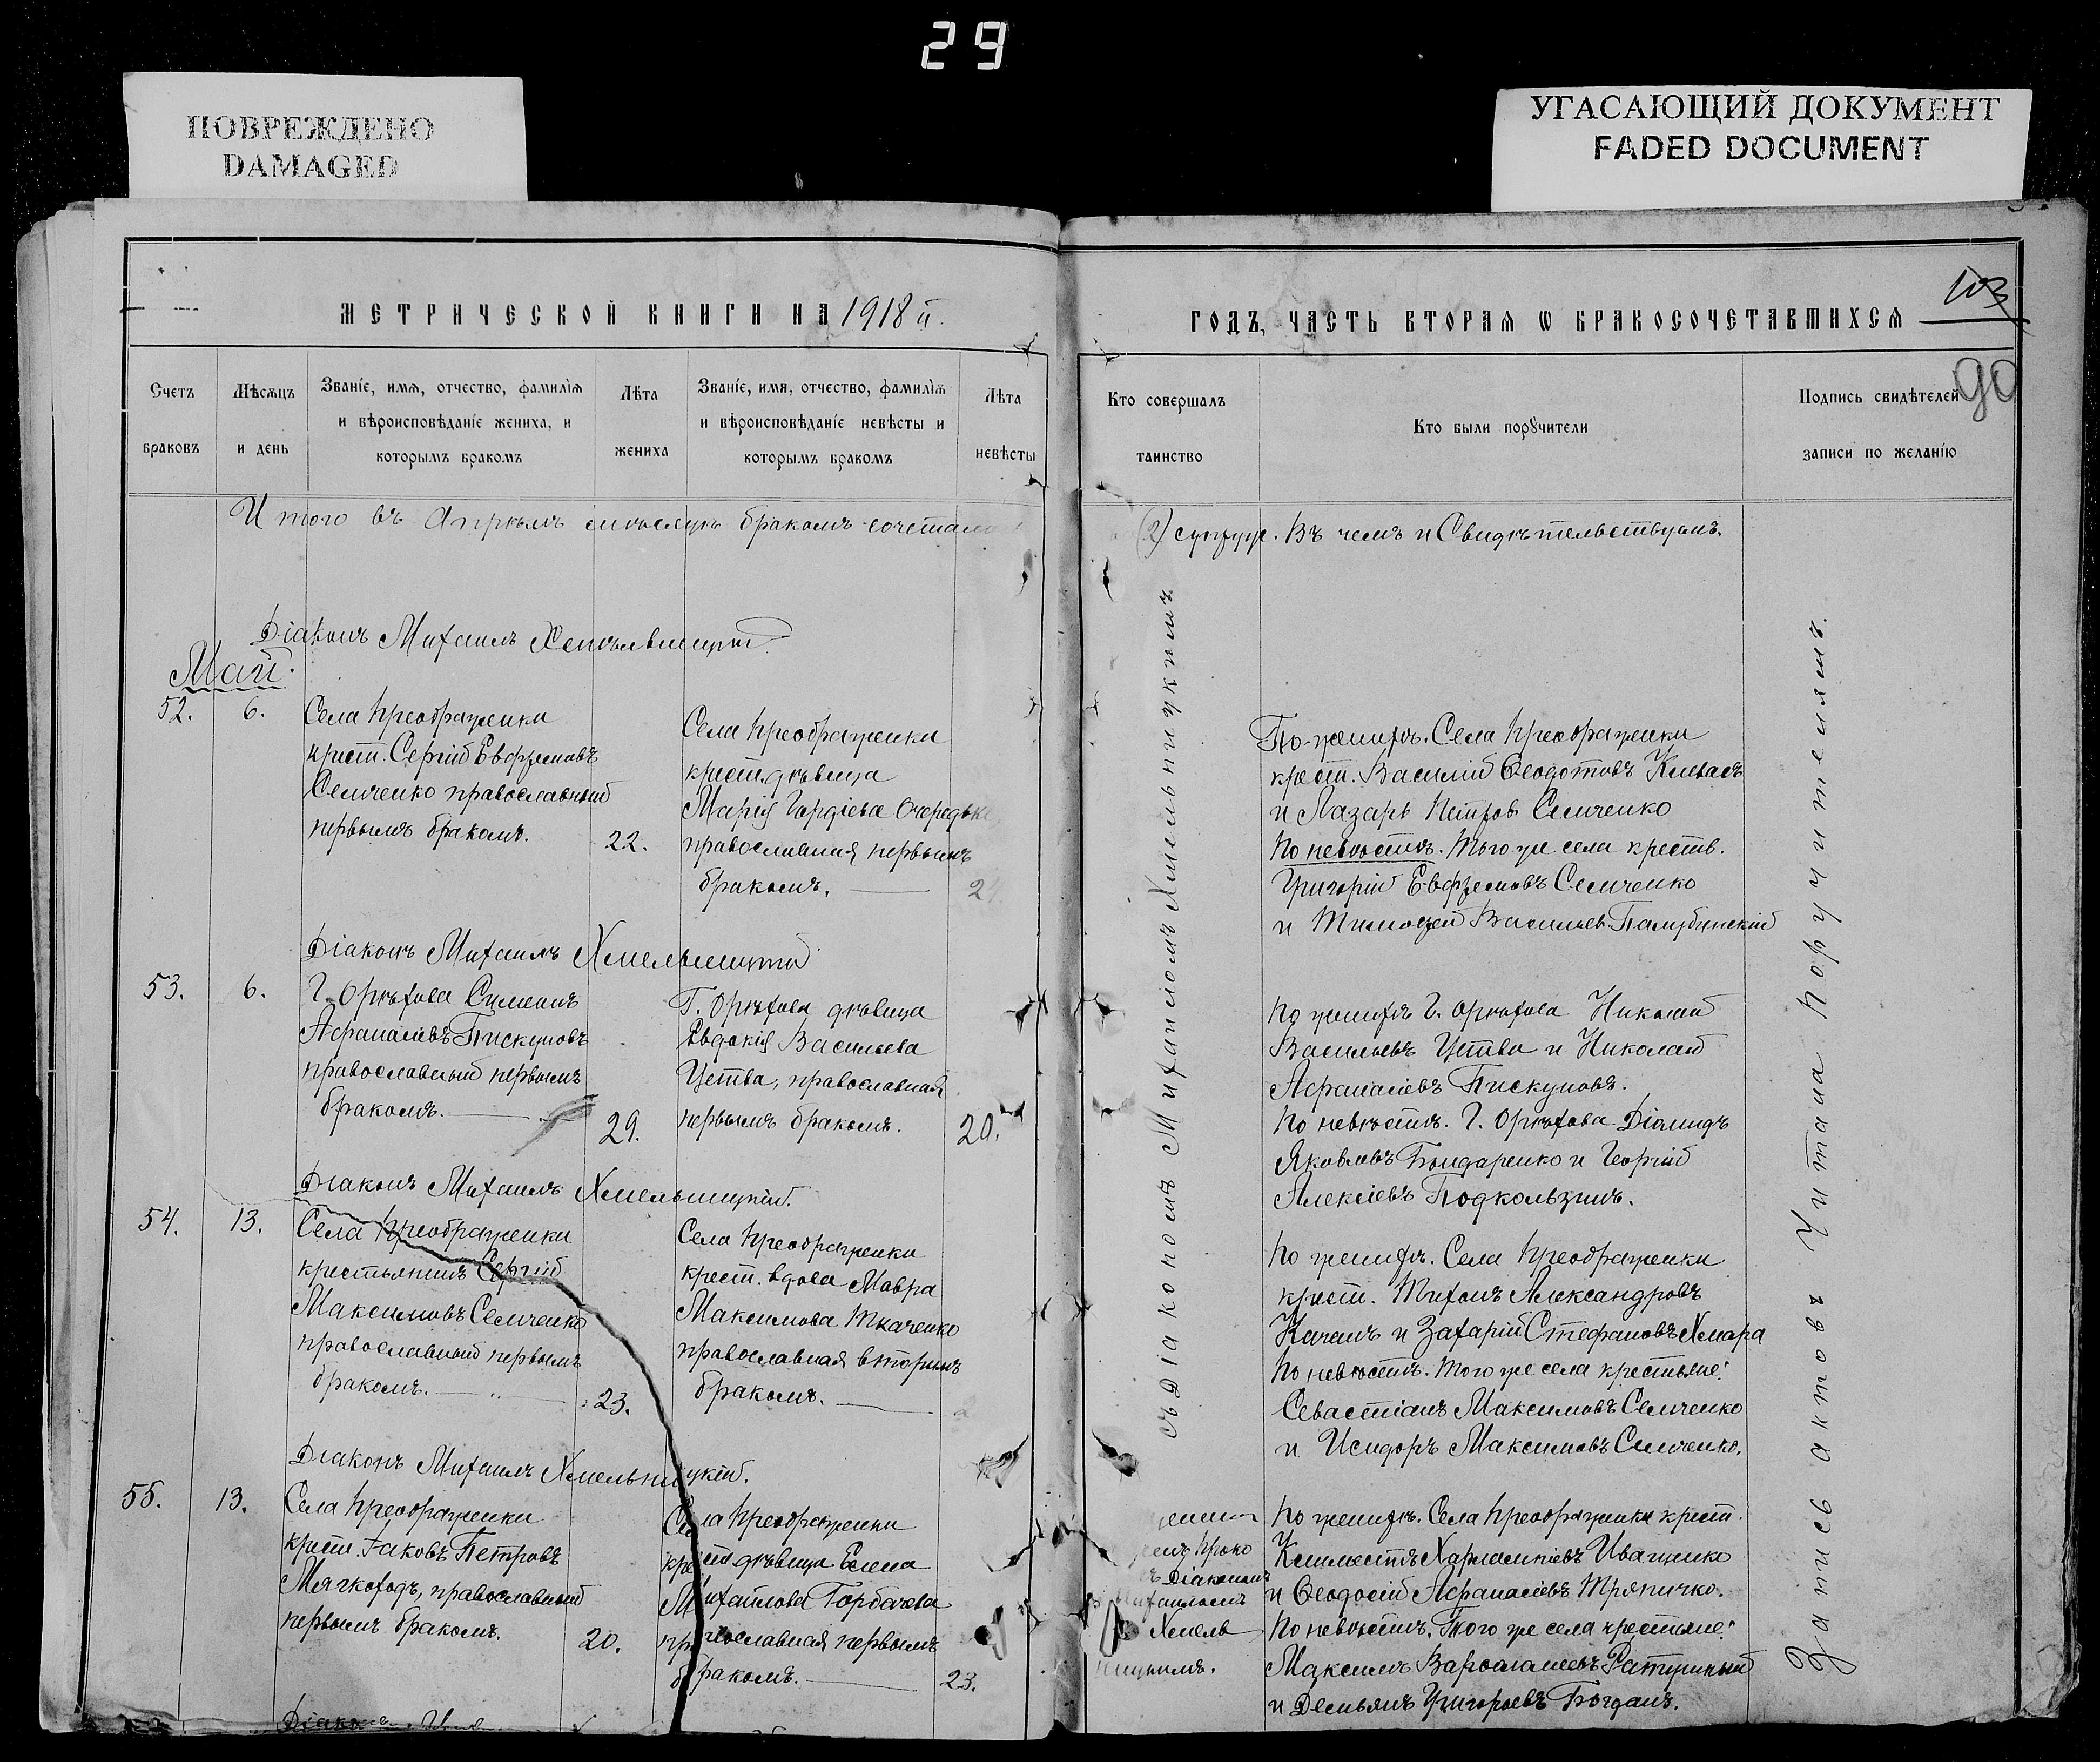 29
ПОВРЕЖДЕНО
DAMAGED
УГАСАЮЩИЙ ДОКУМЕНТ
FADED DOCUMENT
МЕТРИЧЕСКОЙ КНИГИ НА 1918 й.
ГОДЪ, ЧАСТЬ ВТОРАѦ Ѡ БРАКОСОЧЕТАВШИХСѦ
103
90
Счетъ
браковъ
Мѣсѧцъ
и день
Званіе, имѧ, отчество, фамиліѧ
и вѣроисповѣданіе жениха, и
которымъ бракомъ
Лѣта
жениха
Званіе, имя, отчество, фамиліѧ
и вѣроисповѣданіе невѣсты и
которымъ бракомъ
Лѣта
невѣсты
Кто совершалъ
таинство
Кто были порꙋчители
Подпись свидѣтелей
записи по желанію
Итого въ Апрѣлѣ мѣсяцѣ бракомъ сочетало
(2) супруж. Въ чемъ и Свидѣтельствуемъ.
Діаконъ Михаилъ Хмельницкій
Май.
52.
6.
Села Преображенки
крест. Сергій Евфремовъ
Семченко православный
первымъ бракомъ.
22.
Села Преображенки
крест. дѣвица
Марія Гордіева
православная первымъ
бракомъ.
По женихѣ. Села Преображенки
крест. Василій Ѳеодотовъ
и Лазарь Петров Семченко
По невѣстѣ. Того же села креств.
Григорій Евфремовъ Семченко
и Тимоѳей Васильев
Діаконъ Михаилъ Хмельницкій
53.
6.
Г. Орѣхова Симеонъ
Аѳанасіевъ Пискуновъ
православный первымъ
бракомъ.
29.
Г. Орѣхова дѣвица
Евдокія Васильева
православная
первымъ бракомъ.
20.
По женихѣ Г. Орѣхова Николай
Васильевъ и Николай
Аѳанасіевъ Пискуновъ.
По невѣстѣ. Г. Орѣхова Діомидъ
Яковлевъ Бондаренко и Георгій
Алексіевъ Подкользинъ.
Діаконъ Михаилъ Хмельницкій.
54.
13.
Села Преображенки
крестьянинъ Сергій
Максимовъ Семченко
православный первымъ
бракомъ.
23.
Села Преображенки
крест. вдова Мавра
Максимова Ткаченко
православная вторымъ
бракомъ.
По женихѣ. Села Преображенки
крест. Тихонъ Александровъ
Качанъ и Захарій Стефановъ Хмара
По невѣстѣ. Того же села крестьяне:
Севастіанъ Максимовъ Семченко
и Исидоръ Максимовъ Семченко.
Діаконъ Михаилъ Хмельницкій.
55.
13.
Села Преображенки
крест. Іаковъ Петровъ
Мягкоходъ, православный
первымъ бракомъ.
20.
Села Преображенки
крест. дѣвица Елена
Михайлова Горбачева
православная первымъ
бракомъ.
23.
съ Діакономъ
Михаиломъ
Хмель
ницкимъ.
По женихѣ. Села Преображенки крест.
Харлампіевъ Иващенко
и Ѳеодосій Аѳанасіевъ Тряпичко.
По невѣстѣ. Того же села крестьяне:
Максимъ Варѳоломеевъ Ратушный
и Демьянъ Григорьевъ Богданъ.
съ Діакономъ Михаиломъ Хмельницкимъ
Запись актовъ Читана Поручителямъ.